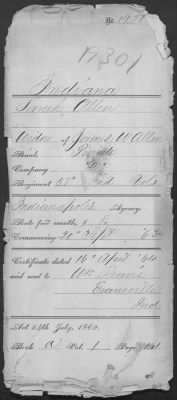 No. 1930
19301
Indiana
Sarah Allen
Widow of James W Allen
Rank Private
Company
Regiment 51" Ind Vols
Indianapolis Agency.
Rate per month, 8
Commencing 20" Sept '62
Certificate dated 16" April '64
and sent to Wm.
Evansville
Ind
Act 14th July, 1862.
Book A Vol. 1 Page 141